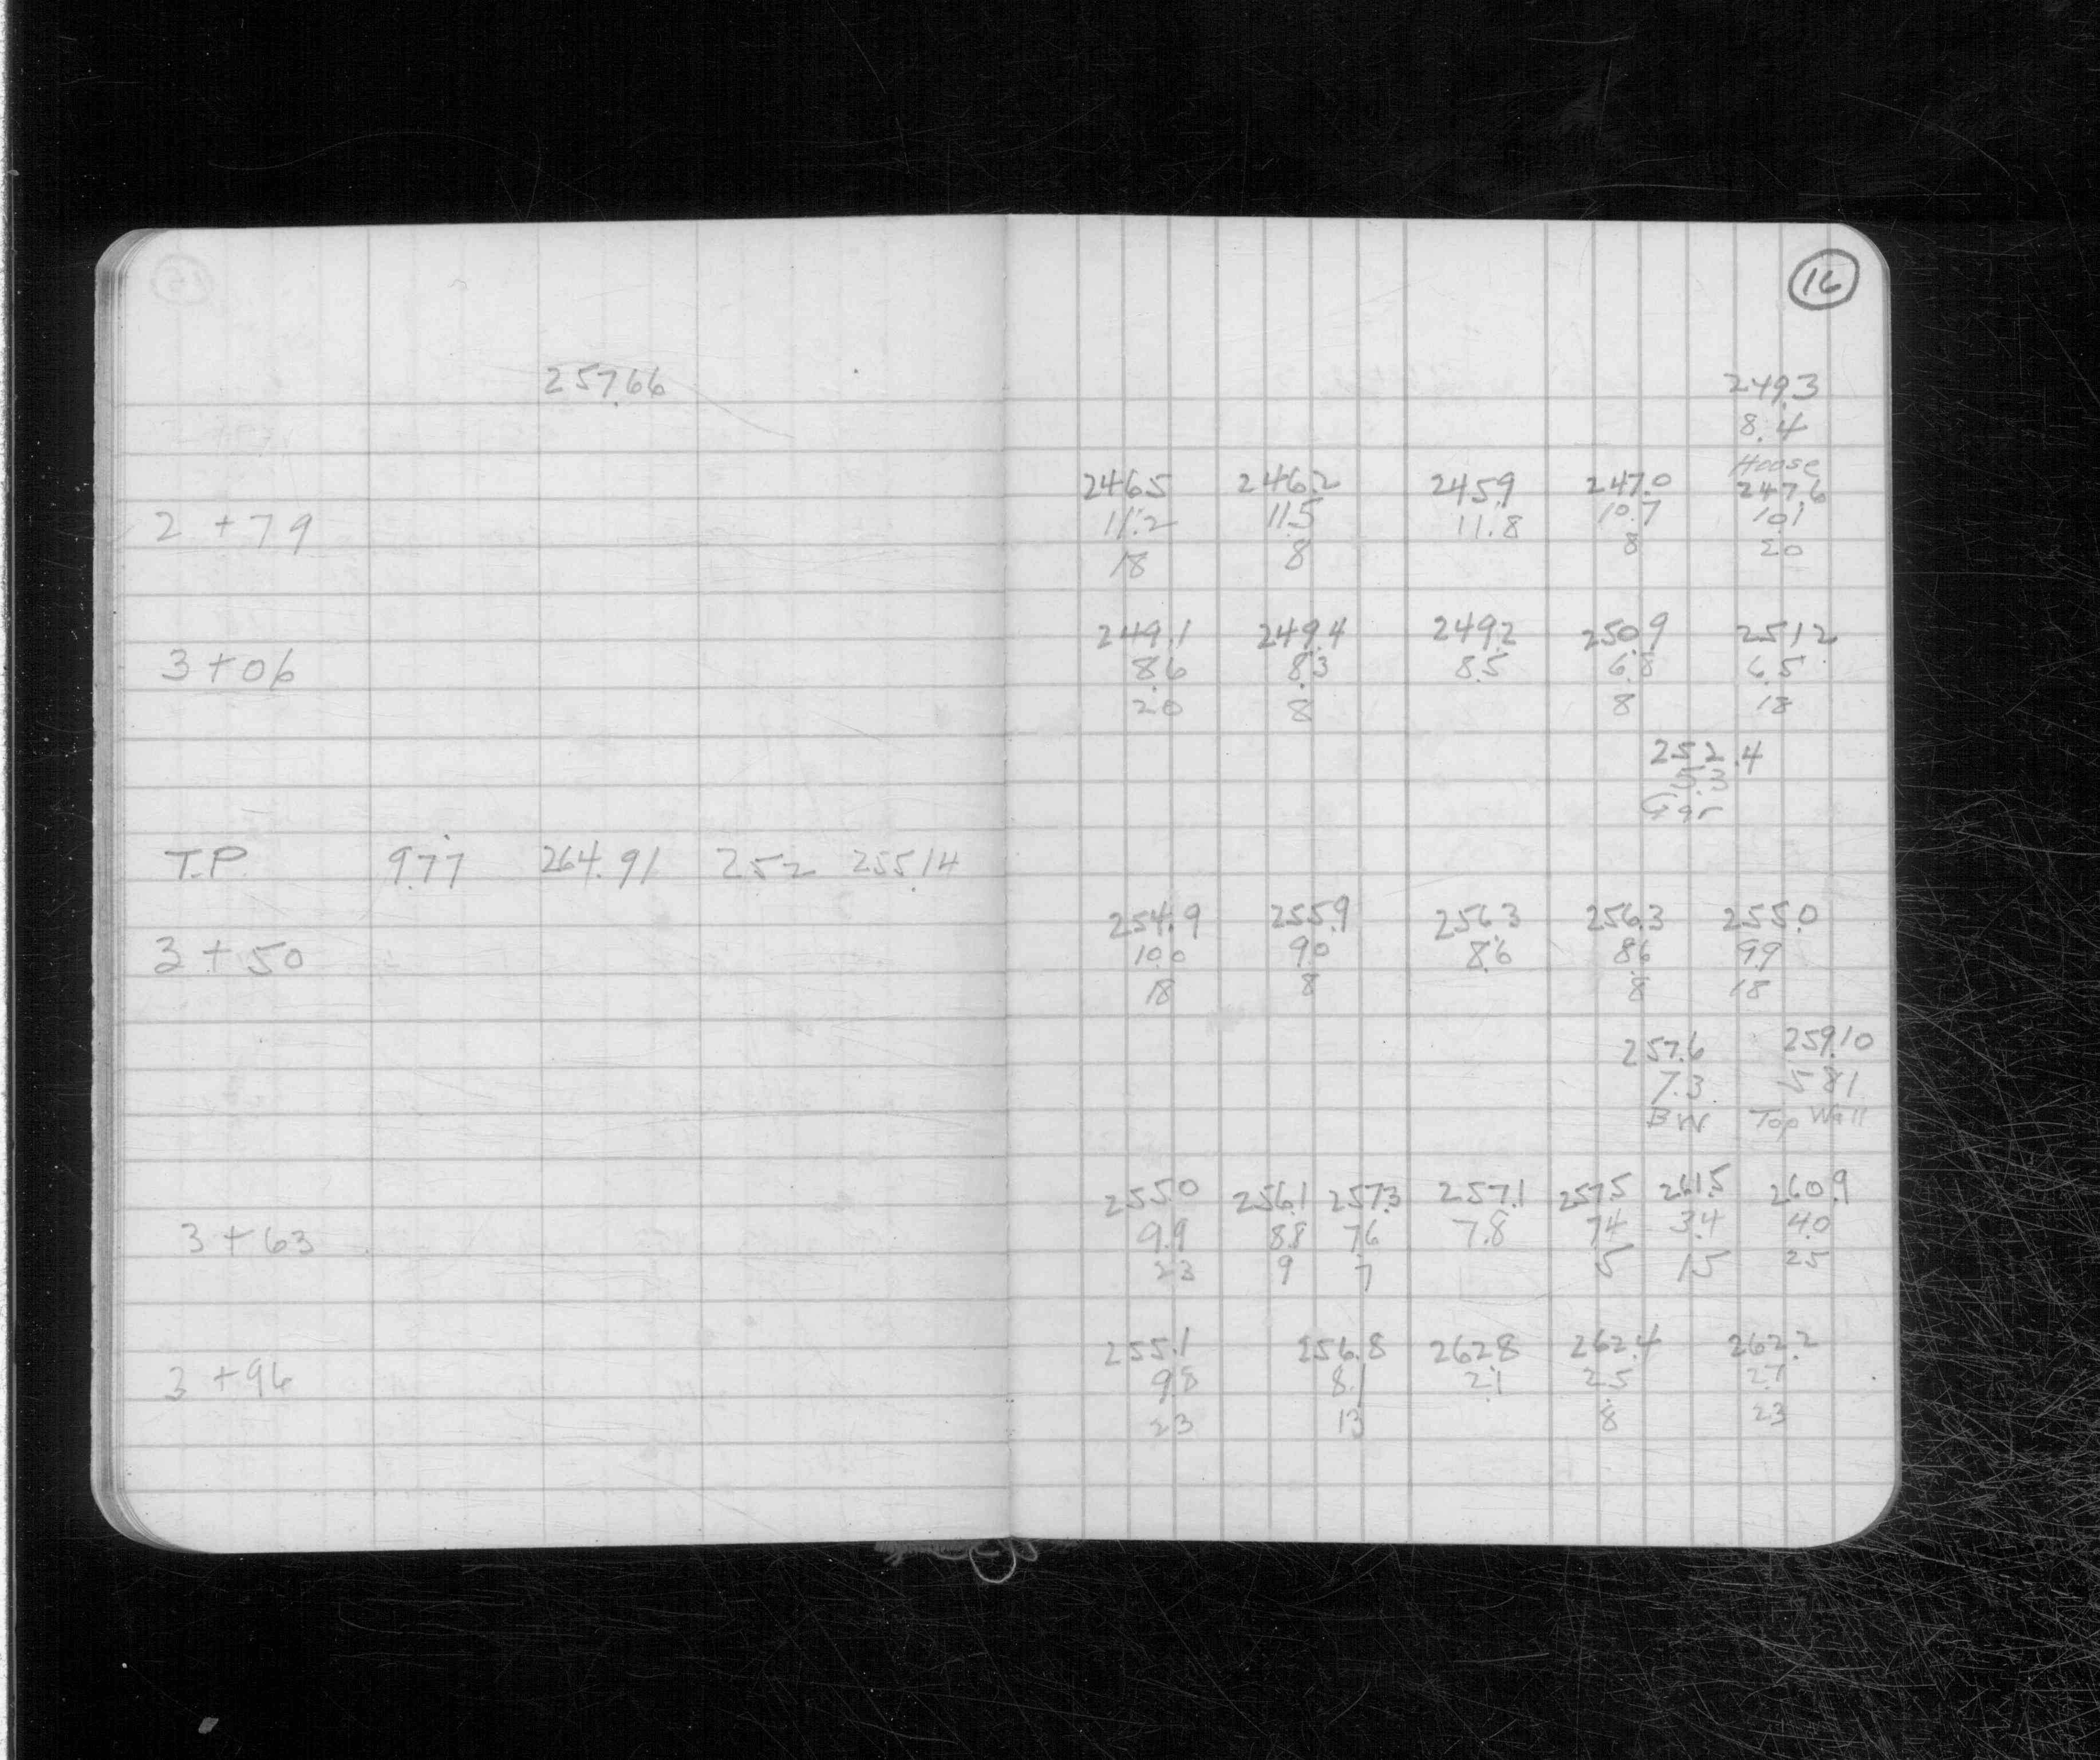 16
257.66
249.3
8.4
House
246.5 246.2 245.9 247.0 247.6
2 + 79 11.2 11.5 11.8 10.7 10.1
18 8 8 20
249.1 249.4 249.2 250.9 251.2
3 + 06 8.6 8.3 8.5 6.8 6.5
20 8 8 18
252.4
5.3
Gar
T.P. 9.77 264.91 2.52 255.14
254.9 255.9 256.3 256.3 255.0
3 + 50 10.0 9.0 8.6 8.6 9.9
18 8 8 18
257.6 259.10
7.3 5.81
BW Top Wall
255.0 256.1 257.3 257.1 257.5 261.5 260.9
3 + 63 9.9 8.8 7.6 7.8 7.4 3.4 4.0
23 9 7 5 15 25
255.1 256.8 262.8 262.4 262.2
3 + 96 9.8 8.1 2.1 2.5 2.7
23 13 8 23